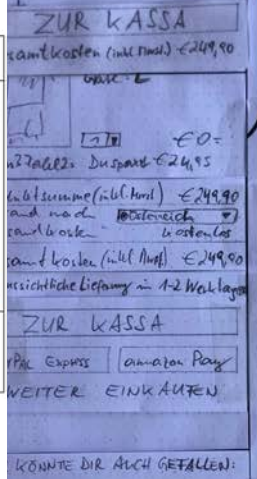 ZUR KASSA
samtkosten (inkl. Mwst.) €249,90
1
€0,-
Du sparst €24,95
summe (inkl. Mwst) €249,90
and nach Österreich
sandkosten kostenlos
samtkosten (inkl. Mwst) €249,90
ussichtliche Lieferung in 1-2 Werktagen
ZUR KASSA
yPAL Express amazon Pay
WEITER EINKAUFEN
KÖNNTE DIR AUCH GEFALLEN: